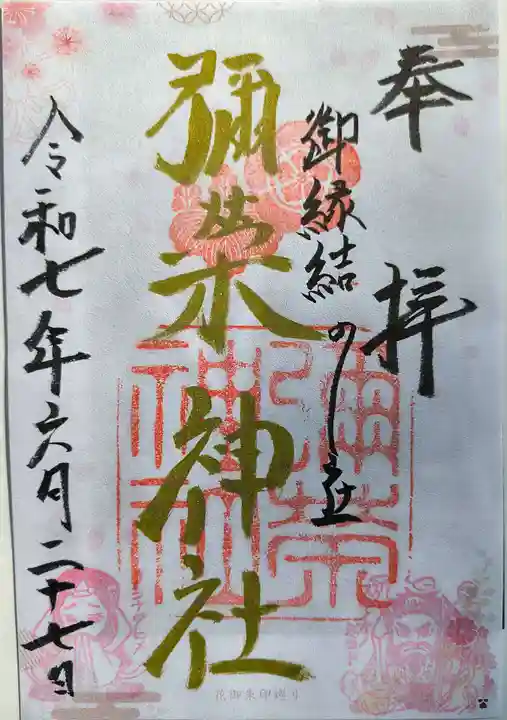 奉拝
御縁結の社
彌榮神社
彌榮神社
令和七年六月二十七日
花御朱印巡り